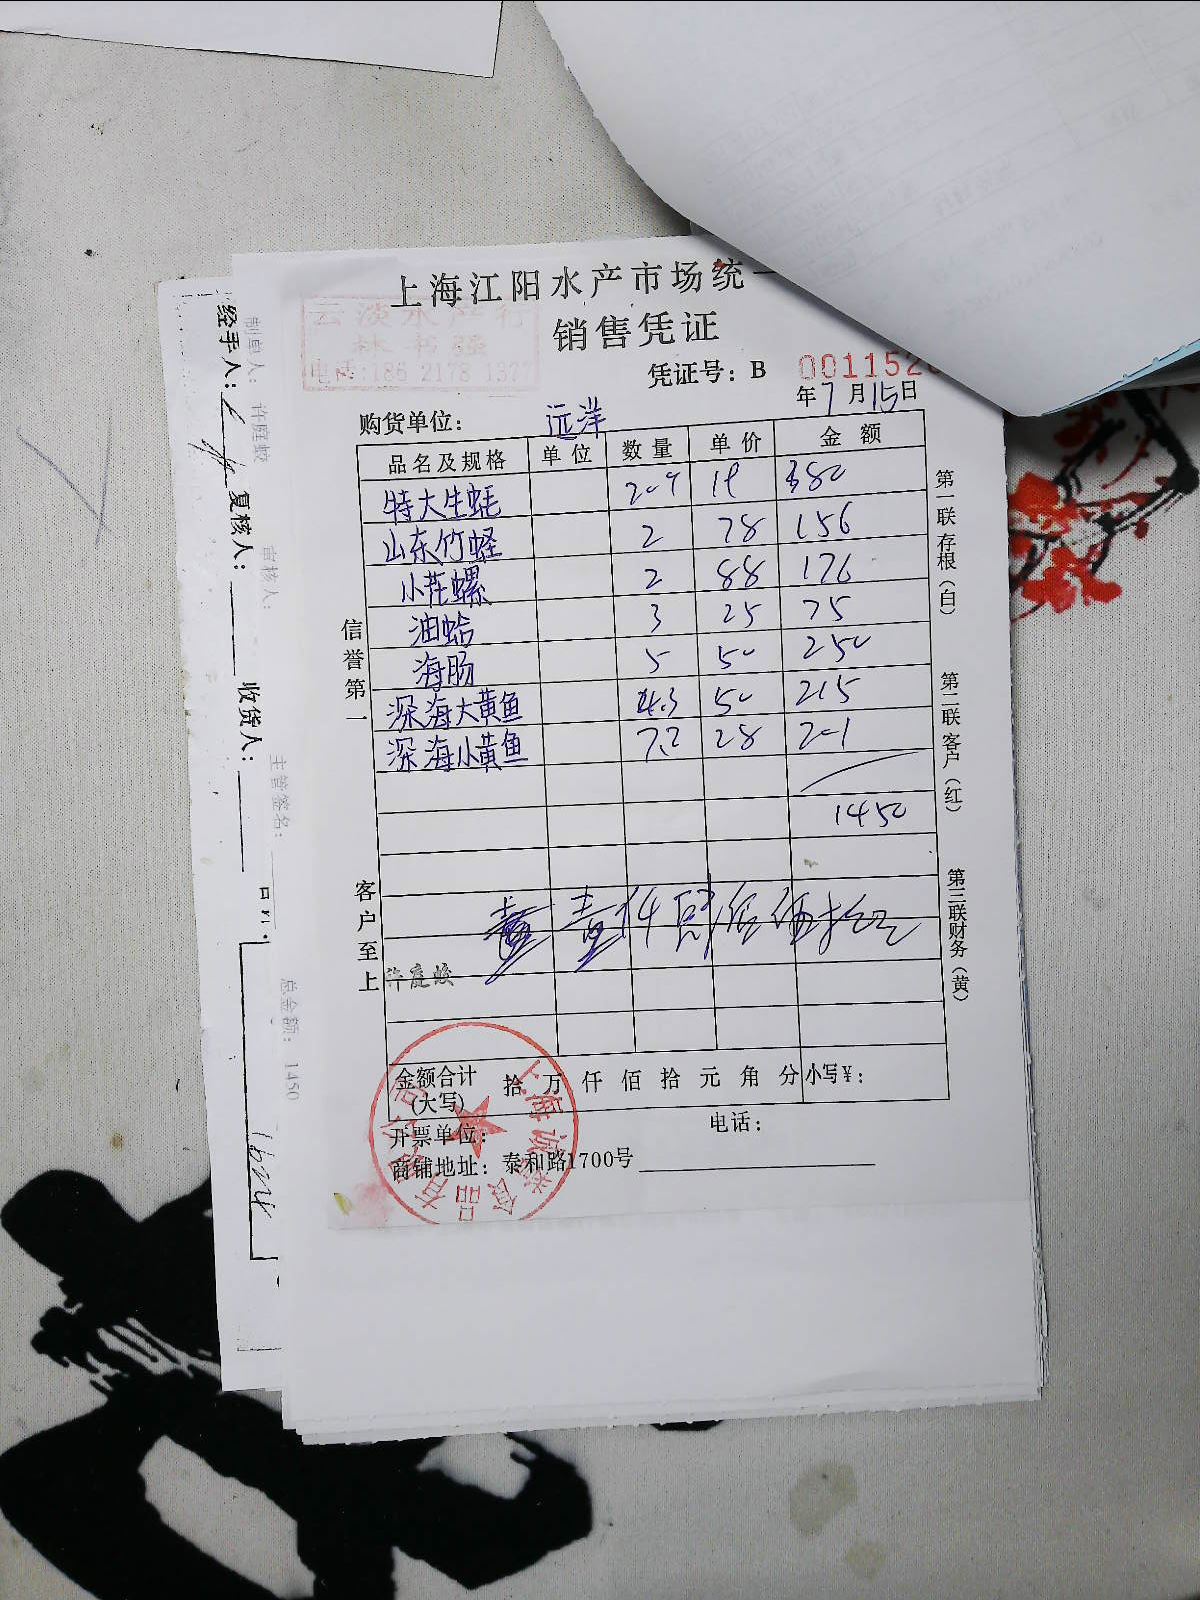 上海江阳水产市场统一
销售凭证
云淡水产行
林书强
电话:186 2178 1377
凭证号：B 001152
年7月15日
购货单位： 远洋
品名及规格 单位 数量 单价 金额
特大生蚝 18 380
山东竹蛏 2 78 156
小花螺 2 88 176
油蛤 3 25 75
海肠 5 50 250
深海大黄鱼 4.3 50 215
深海小黄鱼 7.2 28 201
1450
壹仟肆佰伍拾元
许庭蛟
金额合计(大写) 拾 万 仟 佰 拾 元 角 分 小写¥：
开票单位： 电话：
商铺地址：泰和路1700号
信誉第一
客户至上
第一联存根（白）
第二联客户（红）
第三联财务（黄）
经手人：
复核人：
收货人：
制单人： 许庭蛟
审核人：
主管签名：
总金额： 1450